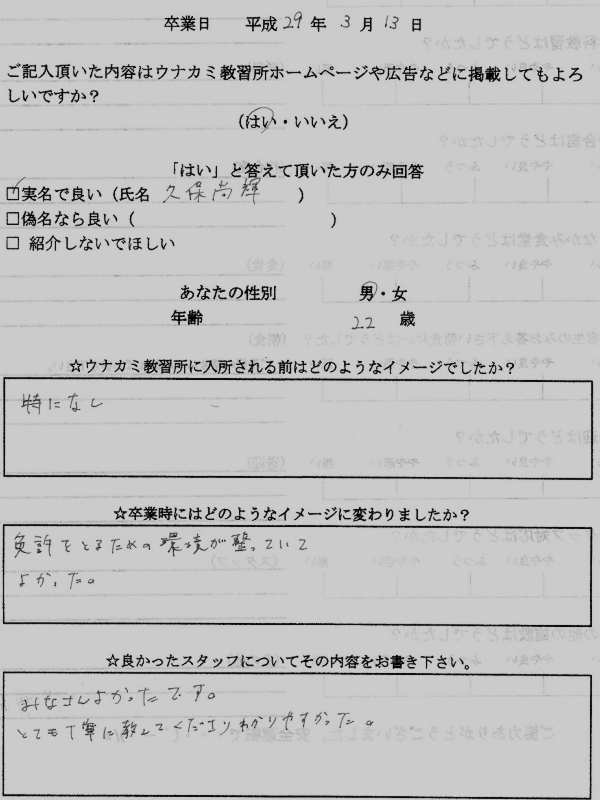 卒業日 平成29年3月13日
ご記入頂いた内容はウナカミ教習所ホームページや広告などに掲載してもよろ
しいですか？
（はい・いいえ）
「はい」と答えて頂いた方のみ回答
☑実名で良い（氏名 久保尚輝 ）
□偽名なら良い（ ）
□ 紹介しないでほしい
あなたの性別 男・女
年齢 22 歳
☆ウナカミ教習所に入所される前はどのようなイメージでしたか？
特になし
☆卒業時にはどのようなイメージに変わりましたか？
免許をとるための環境が整っていて
よかった。
☆良かったスタッフについてその内容をお書き下さい。
みなさんよかったです。
とても丁寧に教えてくださりわかりやすかった。